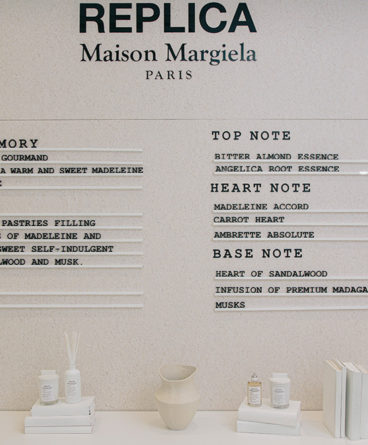 REPLICA
Maison Margiela
PARIS
MORY
GOURMAND
A WARM AND SWEET MADELEINE
E
PASTRIES FILLING
OF MADELEINE AND
SWEET SELF-INDULGENT
LWOOD AND MUSK.
TOP NOTE
BITTER ALMOND ESSENCE
ANGELICA ROOT ESSENCE
HEART NOTE
MADELEINE ACCORD
CARROT HEART
AMBRETTE ABSOLUTE
BASE NOTE
HEART OF SANDALWOOD
INFUSION OF PREMIUM MADAGA
MUSKS